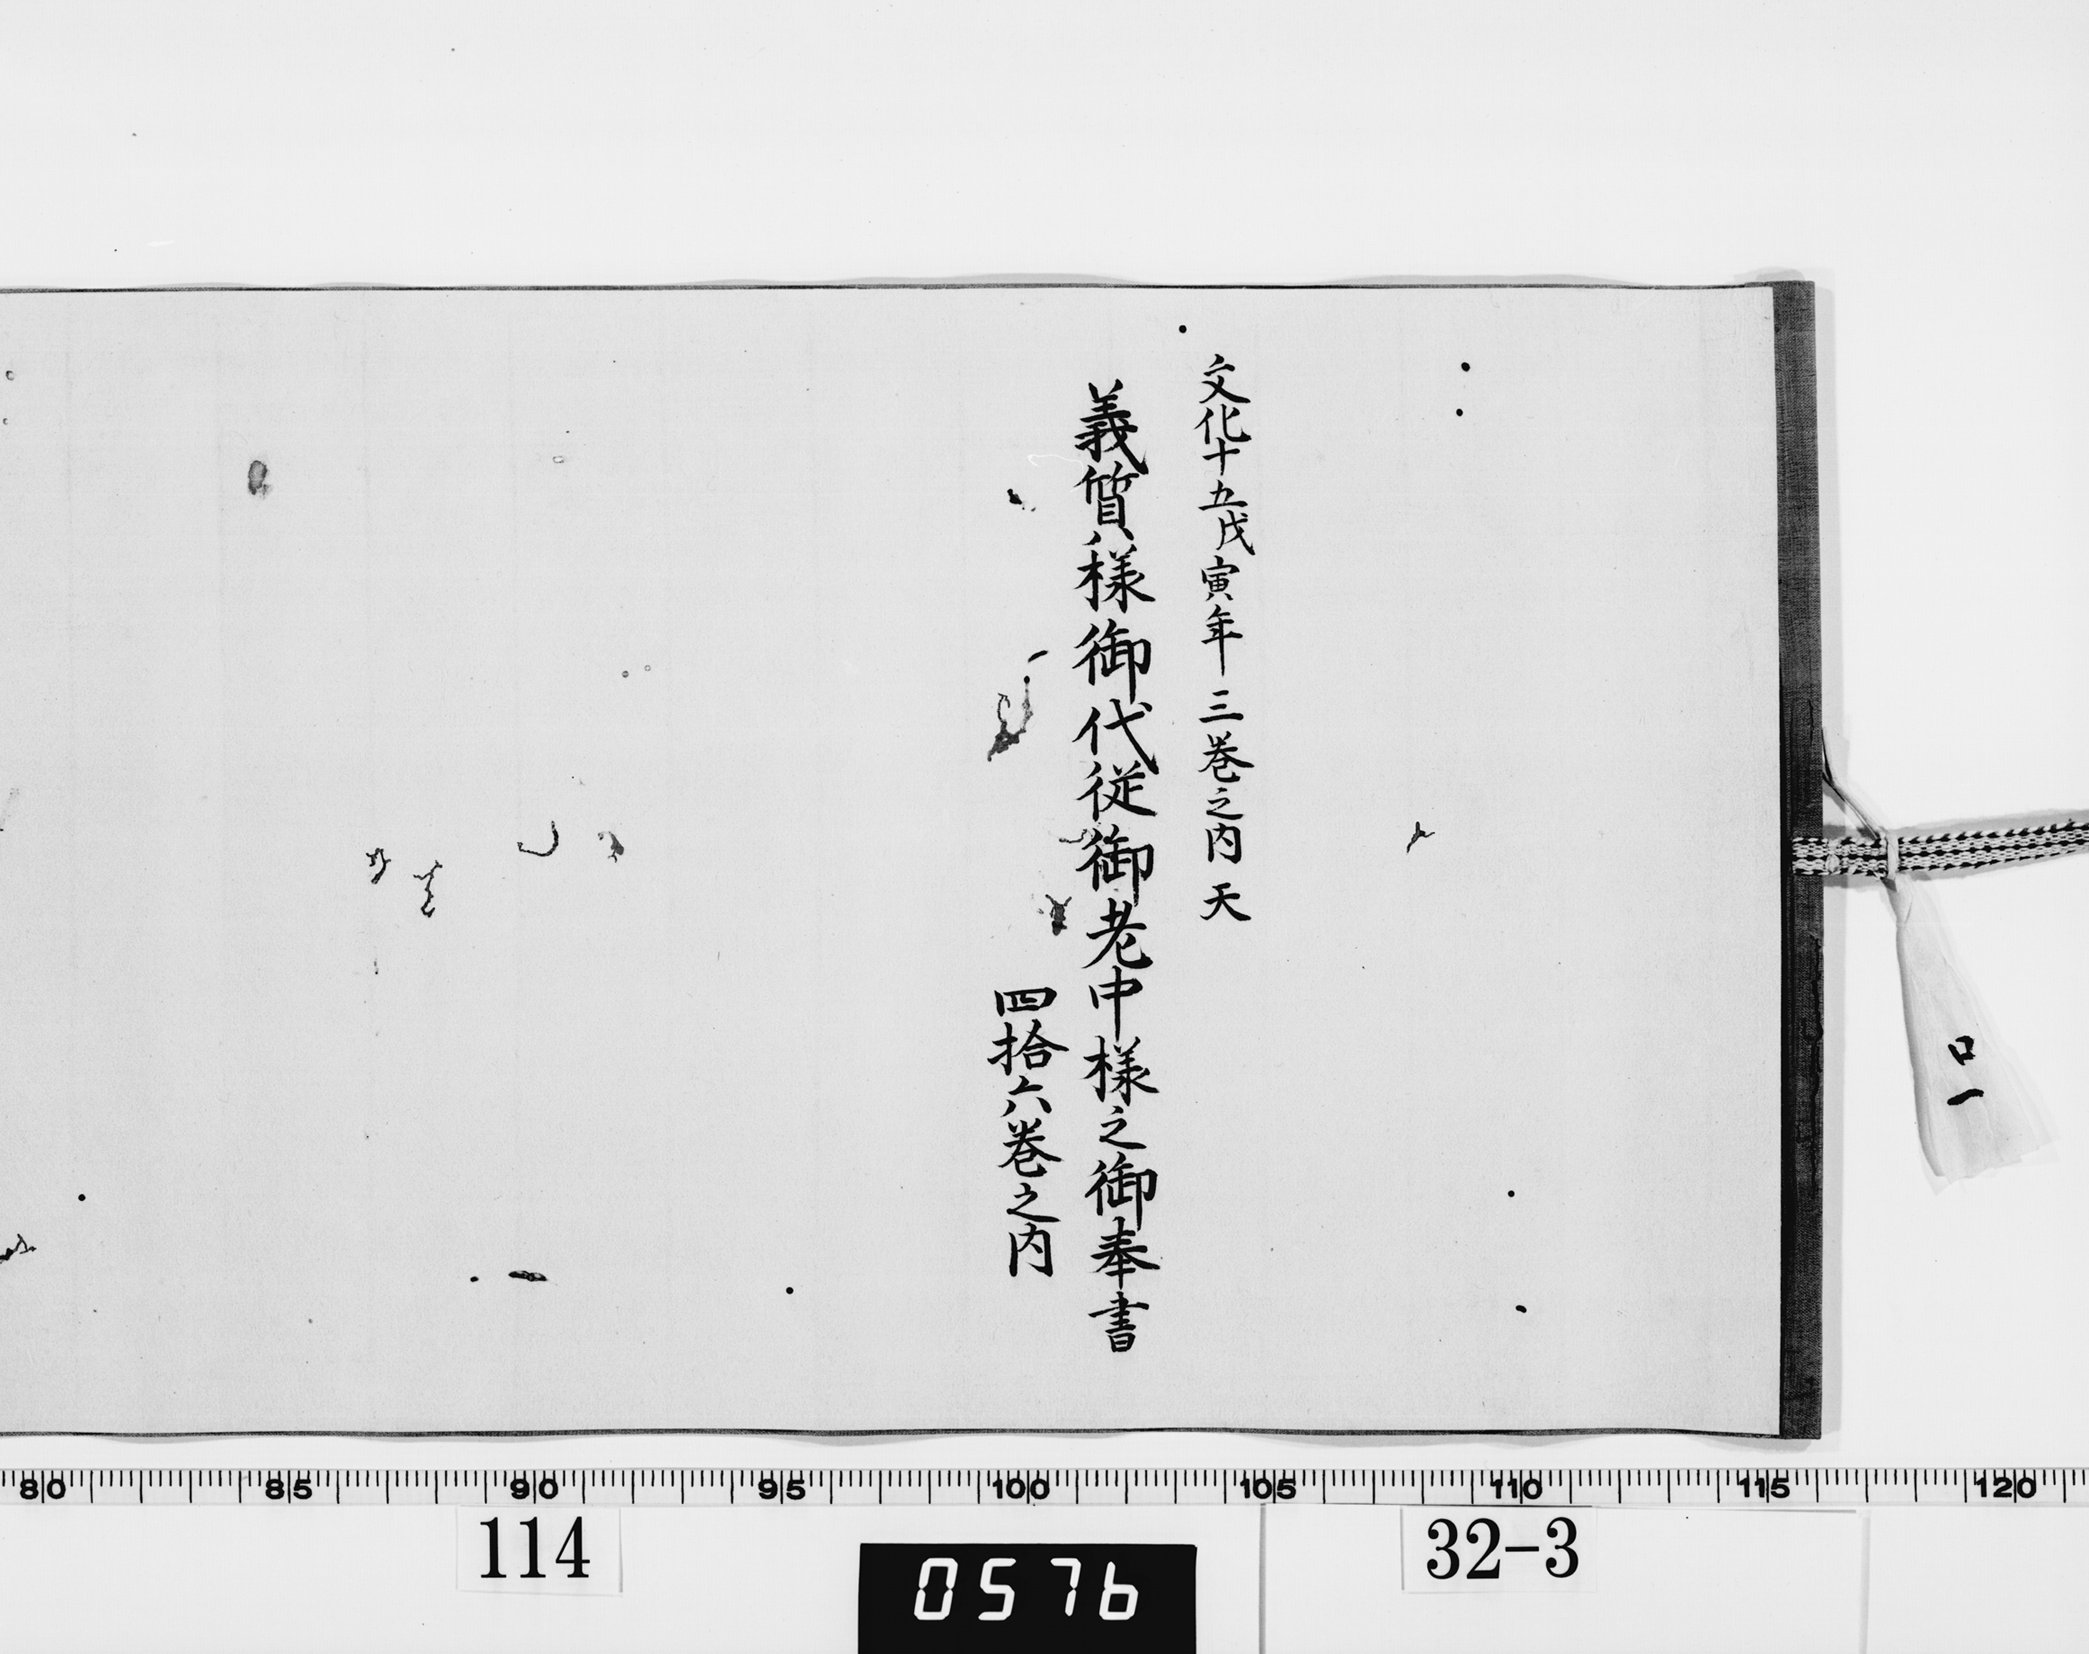 口一
文化十五戊寅年 三巻之内 天
義質様御代従御老中様之御奉書
四拾六巻之内
80 85 90 95 100 105 110 115 120
114
0576
32-3